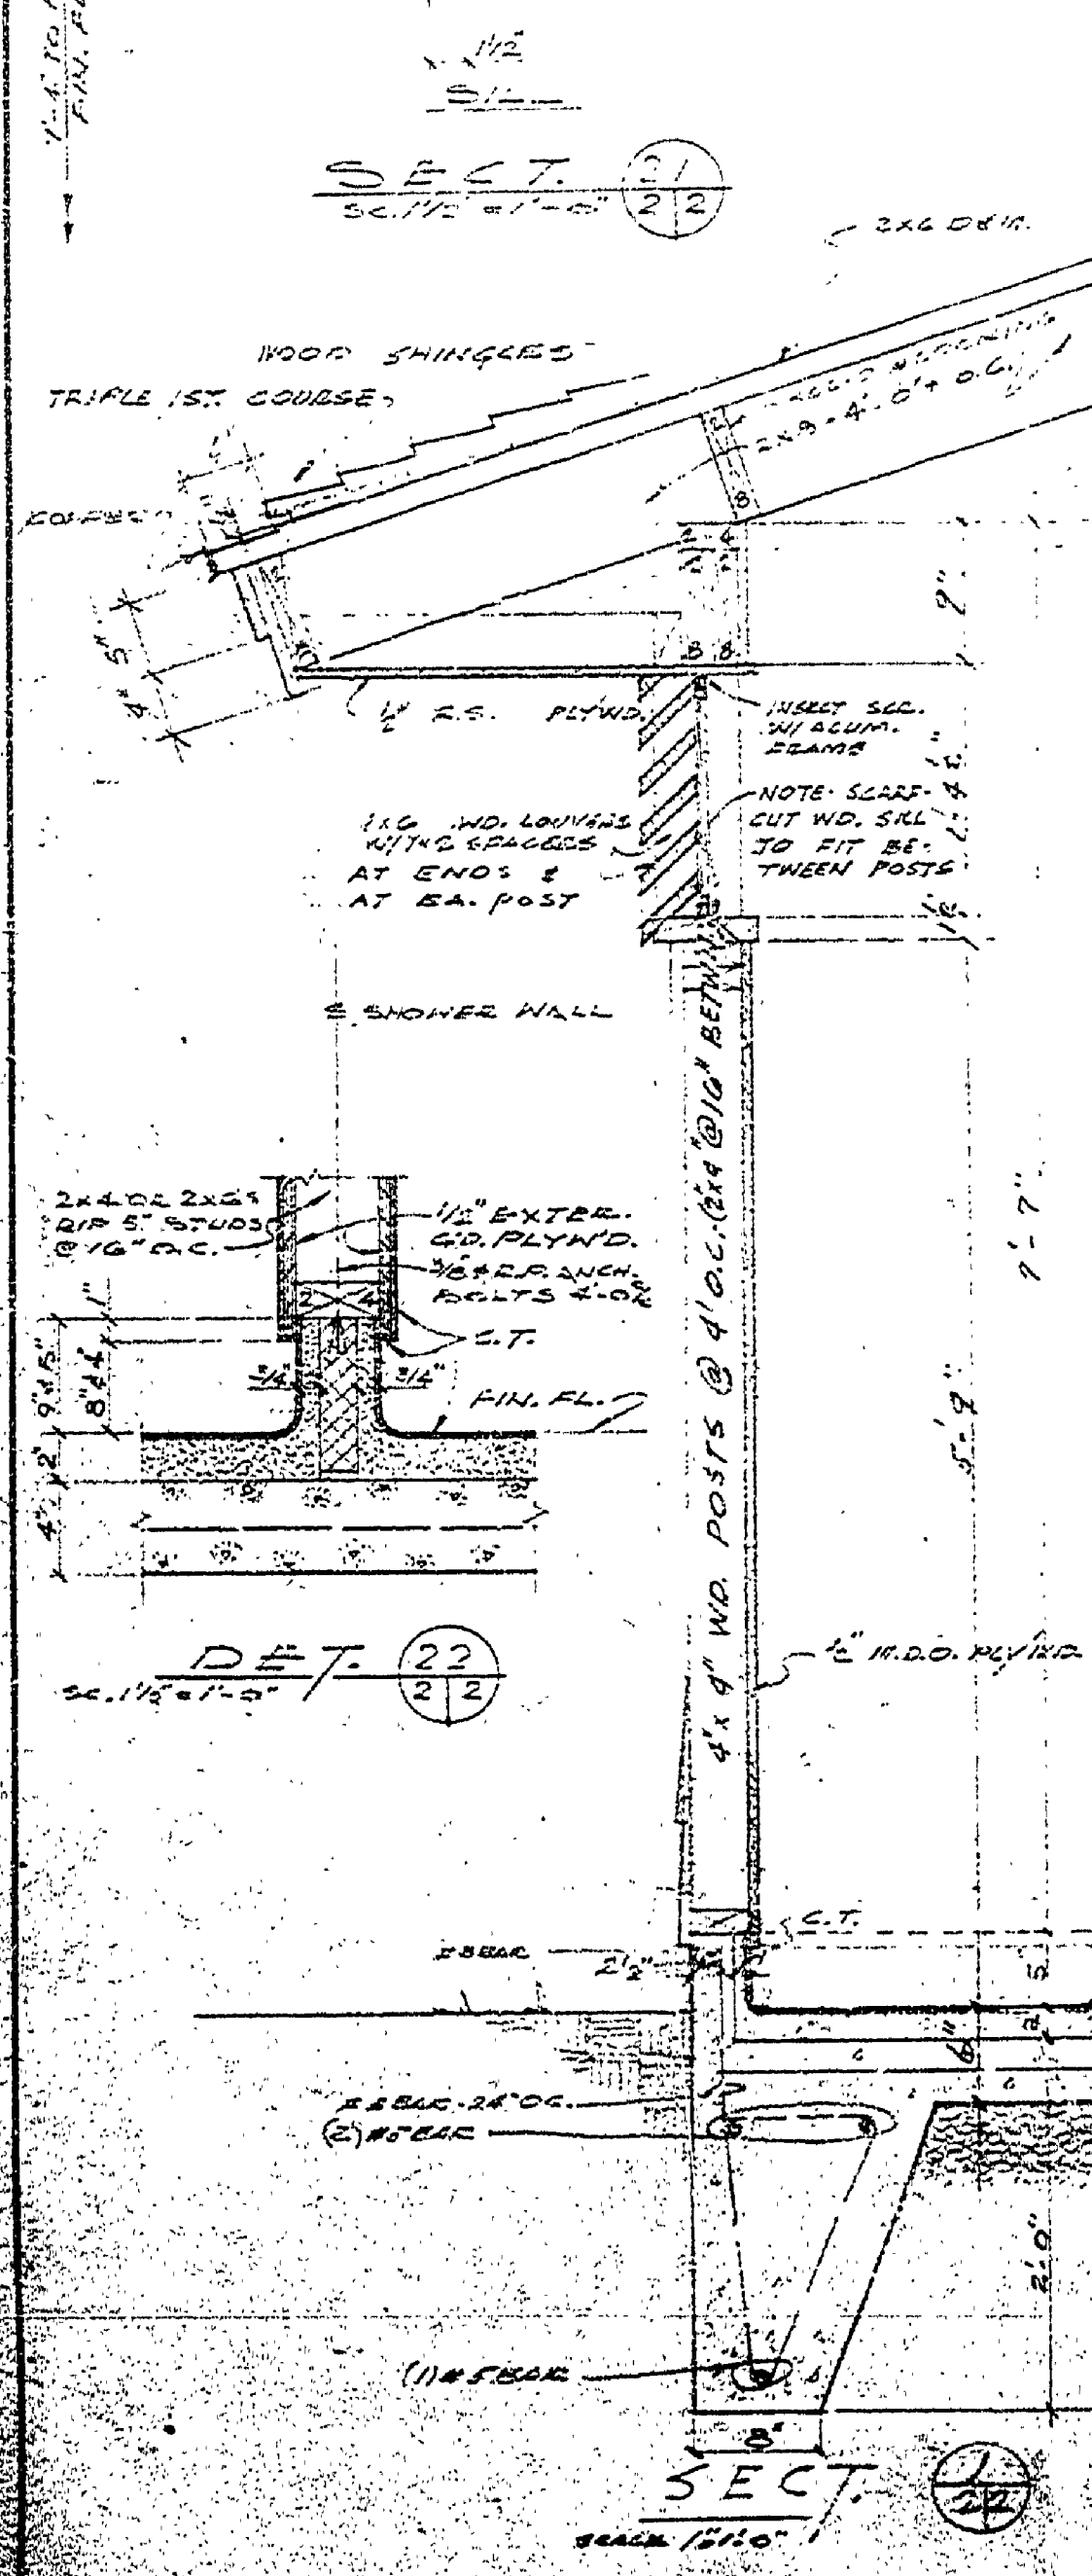 FIN. FL
1/2"
SILL
SECT. 21
2 2
SC. 1 1/2" = 1'-0"
2X6 D&M.
WOOD SHINGLES
TRIPLE 1ST. COURSE
2X8 - 4'-0" O.C.
8
9"
4" 5"
8 8
1/2" E.S. PLYWD.
INSECT SCR.
W/ ALUM.
FRAME
NOTE: SCARF-
CUT WD. SILL
TO FIT BE-
TWEEN POSTS
1X6 WD. LOUVERS
W/ 1X2 SPACERS
AT ENDS &
AT EA. POST
℄ SHOWER WALL
4"x4" WD. POSTS @ 4' O.C. (2x4 @ 16" BETW.)
7'-7"
5'-9"
2x4 OR 2x6'S
RIP 5" STUDS
@ 16" O.C.
1/2" EXTER.
GD. PLYW'D.
ANCH.
BOLTS 4'-0"
2 4
C.T.
1"
3/4" 3/4"
FIN. FL.
2"
4"
DET. 22
2 2
SC. 1 1/2" = 1'-0"
1/2" M.D.O. PLYWD
C.T.
BAR
2 1/2"
5"
2"
6"
BAR - 24" O.C.
(2) #5 BAR
2'-0"
(1) #5 BAR
8"
SECT. 1
2 2
SCALE 1"=1'-0"